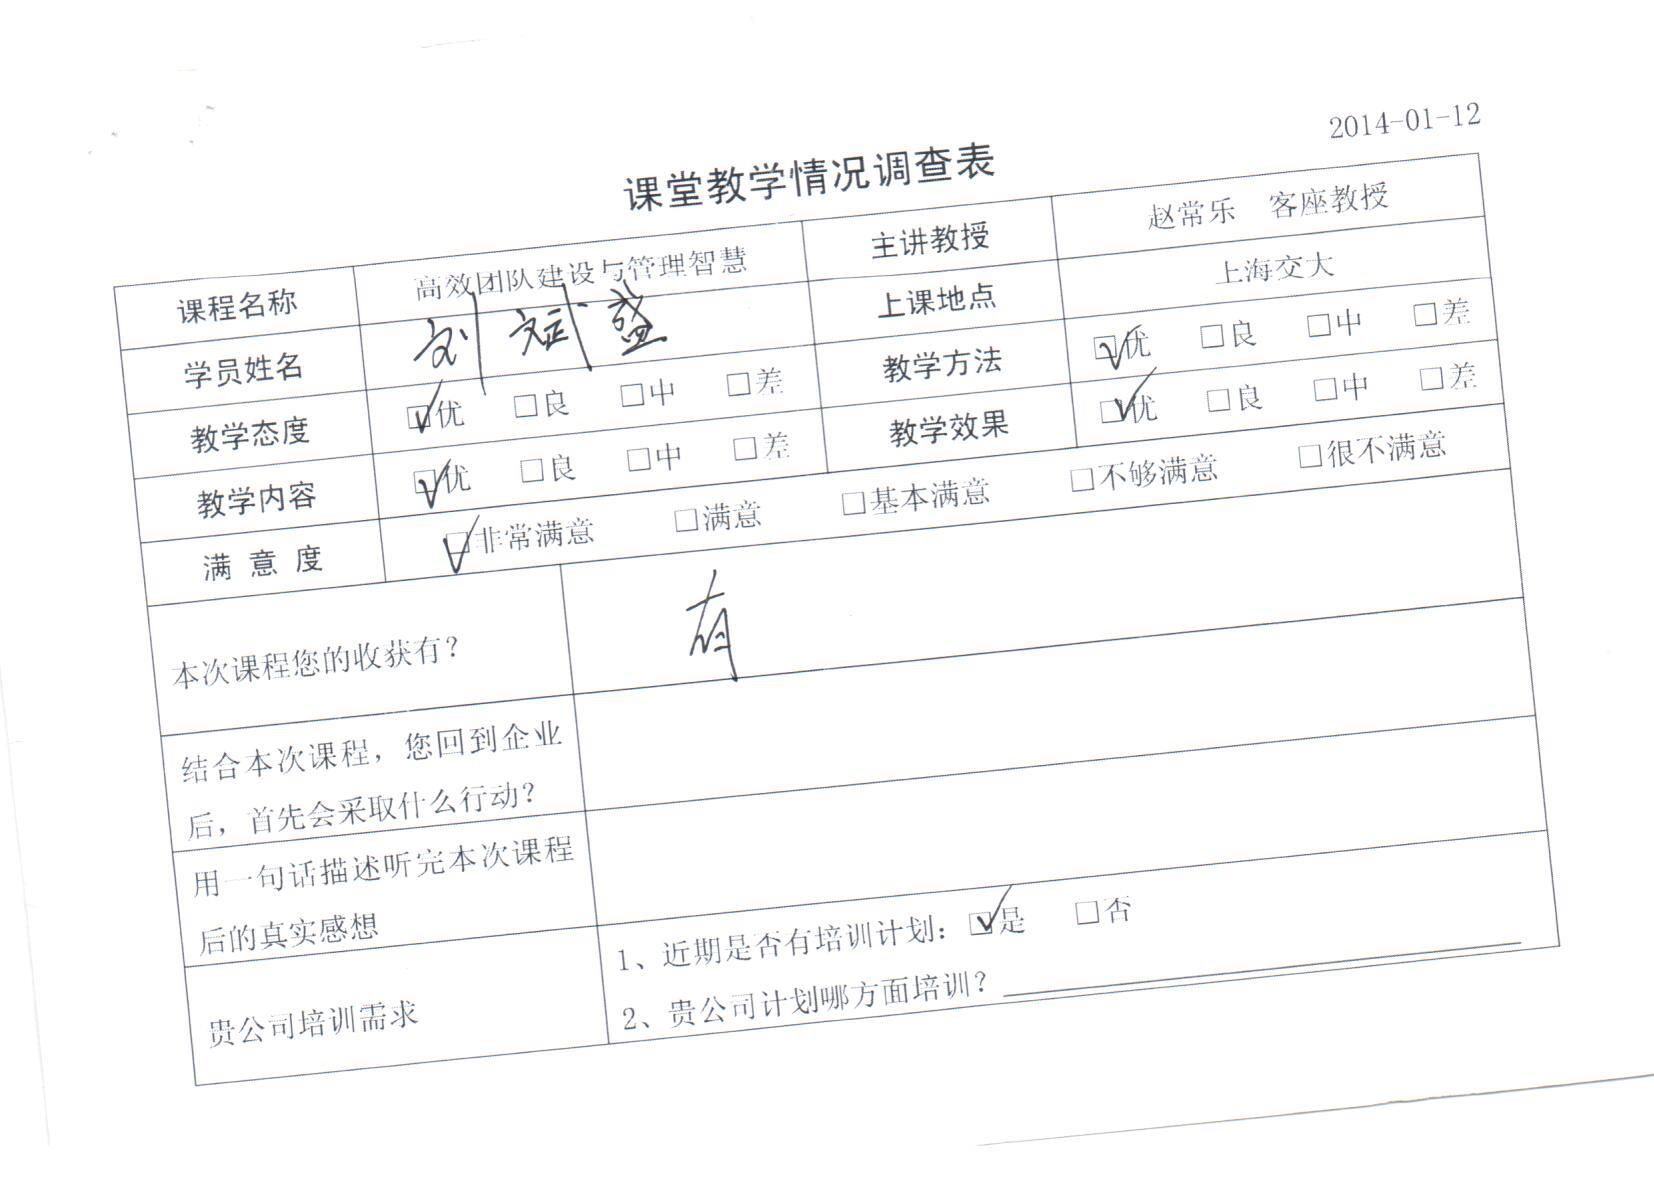 2014-01-12
课堂教学情况调查表
课程名称 高效团队建设与管理智慧 主讲教授 赵常乐 客座教授
学员姓名 刘斌盛 上课地点 上海交大
教学态度 ☑优 □良 □中 □差 教学方法 ☑优 □良 □中 □差
教学内容 ☑优 □良 □中 □差 教学效果 ☑优 □良 □中 □差
满 意 度 ☑非常满意 □满意 □基本满意 □不够满意 □很不满意
本次课程您的收获有？ 有
结合本次课程，您回到企业
后，首先会采取什么行动？
用一句话描述听完本次课程
后的真实感想
贵公司培训需求
1、近期是否有培训计划：☑是 □否
2、贵公司计划哪方面培训？